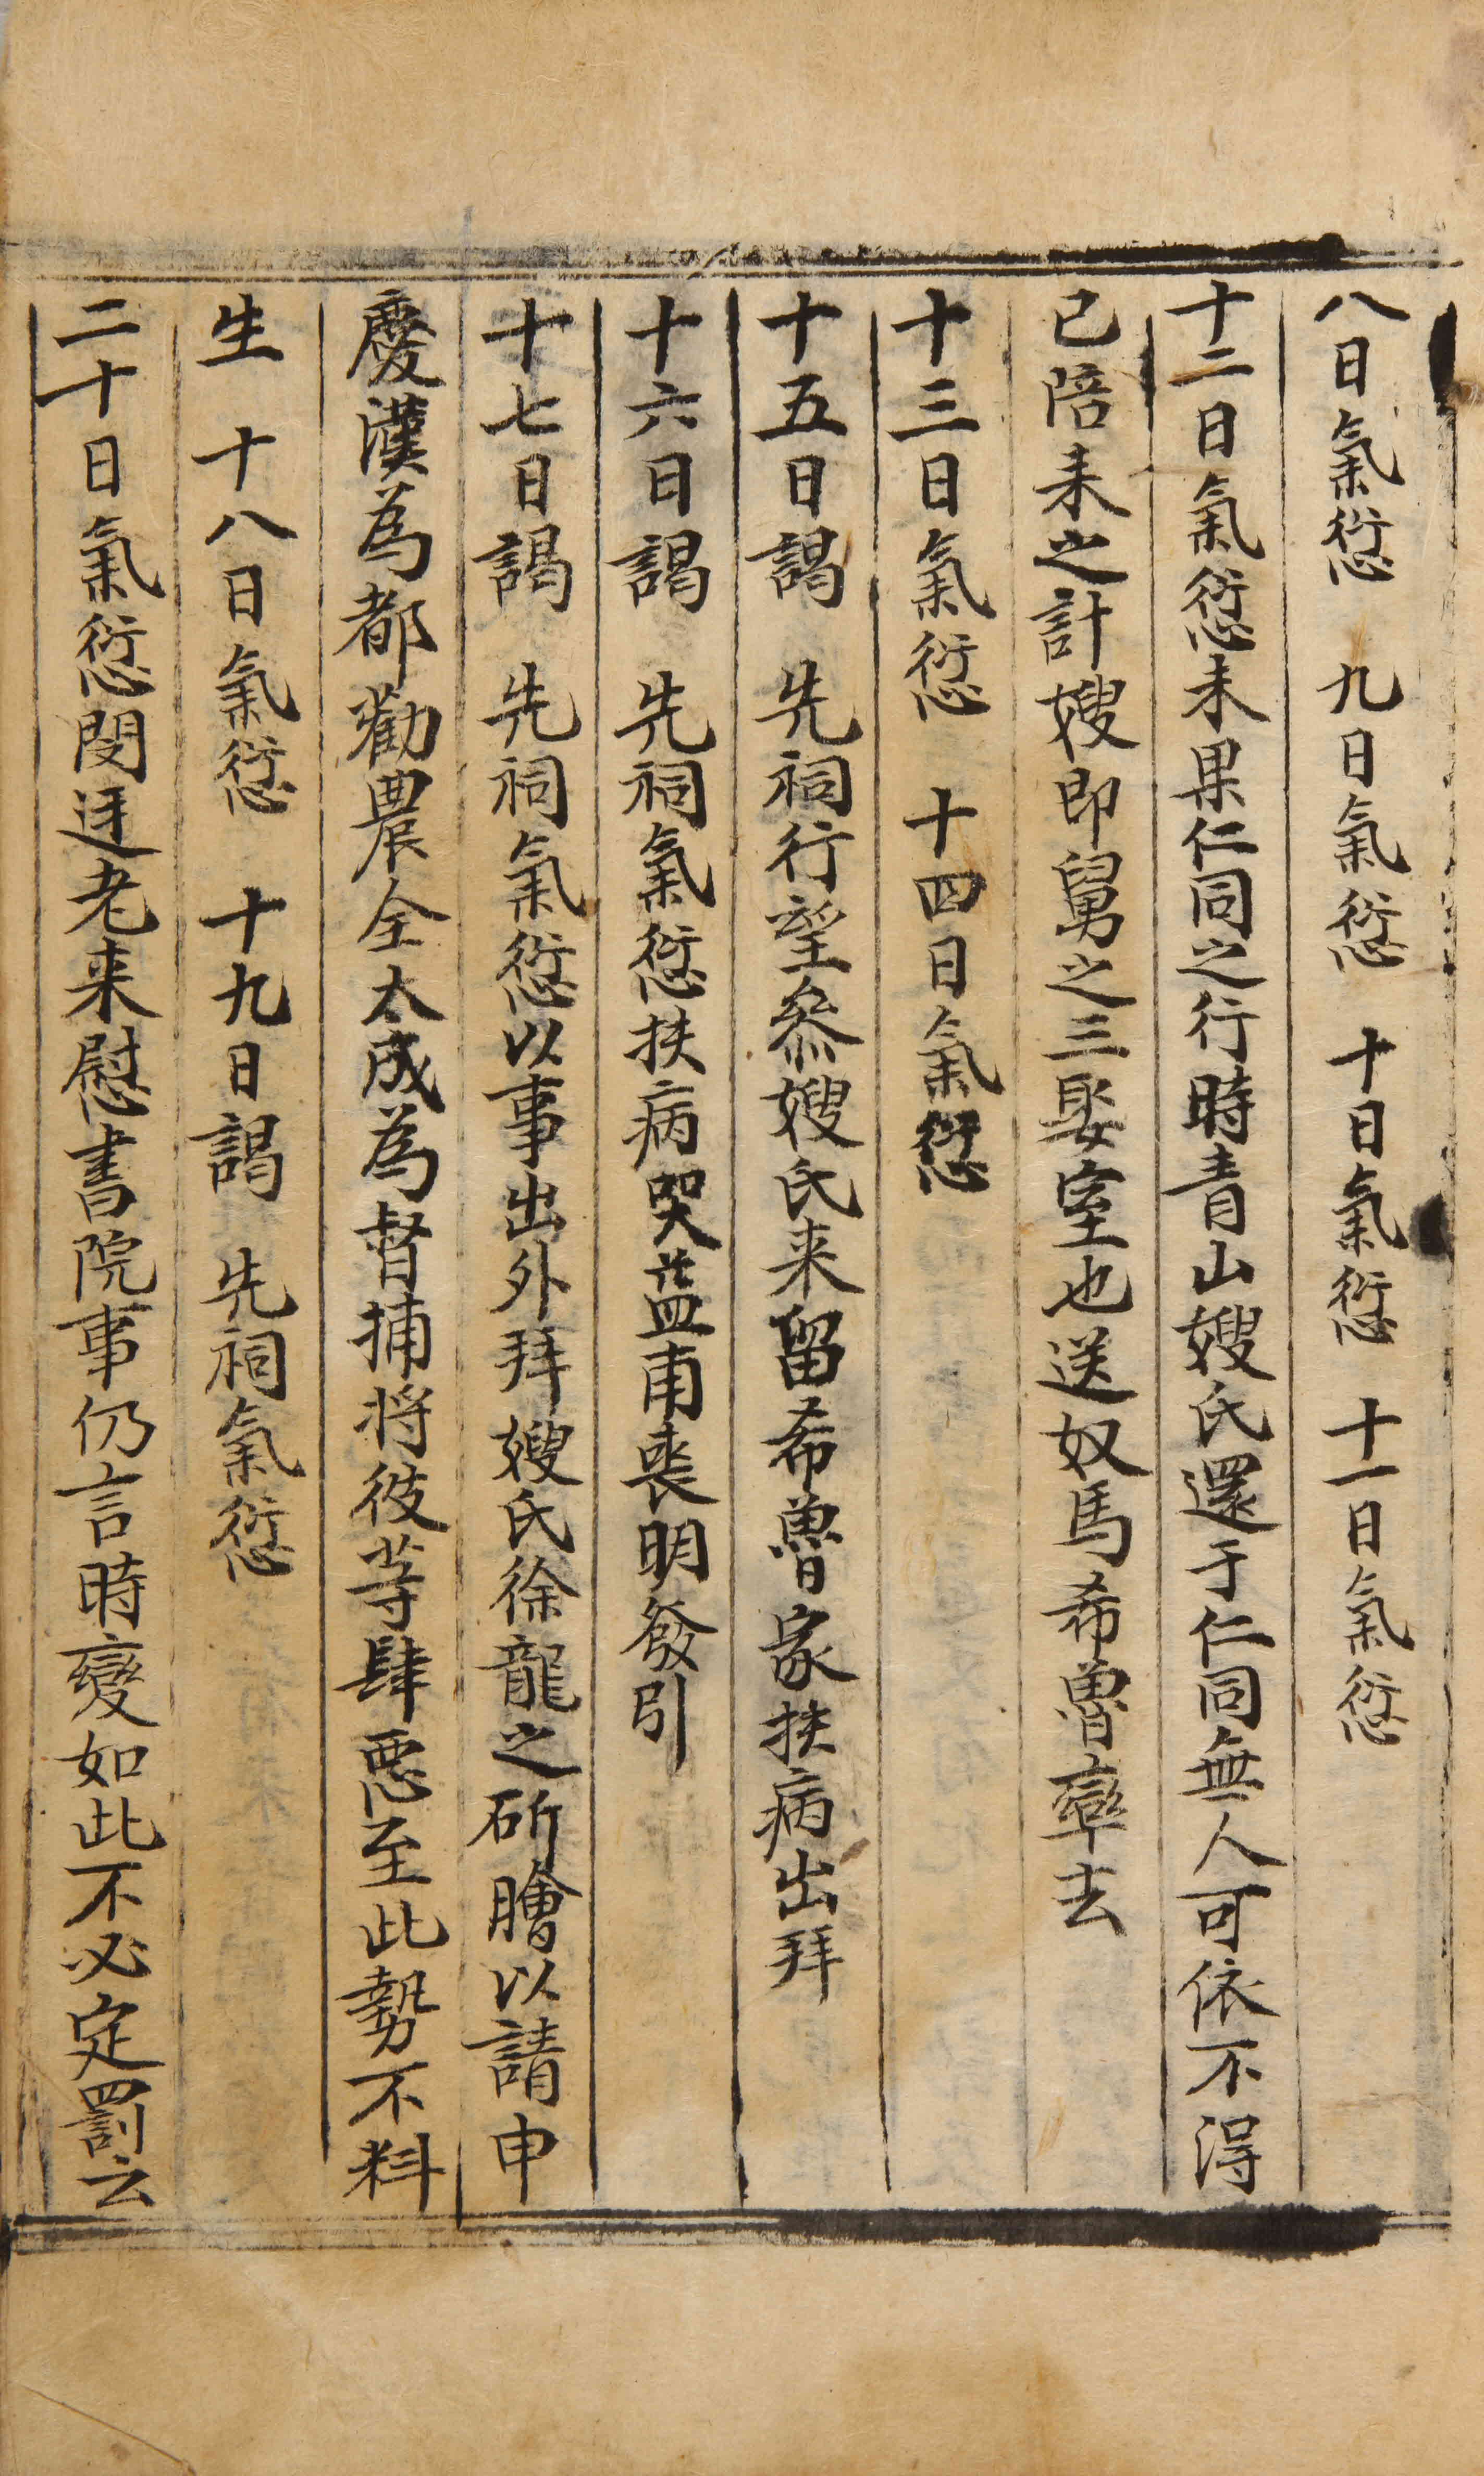 八日氣愆 九日氣愆 十日氣愆 十一日氣愆
十二日氣愆未果仁同之行時青山嫂氏還于仁同無人可依不得
已陪来之計嫂即舅之三娶室也送奴馬希魯率去
十三日氣愆 十四日氣愆
十五日謁 先祠行望叅嫂氏来留希魯家扶病出拜
十六日謁 先祠氣愆扶病哭蓋甫喪明發引
十七日謁 先祠氣愆以事出外拜嫂氏徐龍之斫膾以請申
慶漢為都勸農全太成為督捕将彼等肆悪至此勢不料
生 十八日氣愆 十九日謁 先祠氣愆
二十日氣愆閔迋老来慰書院事仍言時變如此不必定罰云